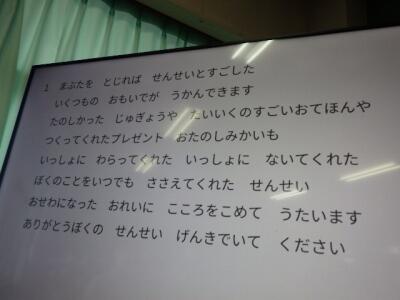 1 まぶたを とじれば せんせいとすごした
いくつもの おもいでが うかんできます
たのしかった じゅぎょうや たいいくのすごいおてほんや
つくってくれたプレゼント おたのしみかいも
いっしょに わらってくれた いっしょに ないてくれた
ぼくのことをいつでも ささえてくれた せんせい
おせわになった おれいに こころをこめて うたいます
ありがとうぼくの せんせい げんきでいて ください